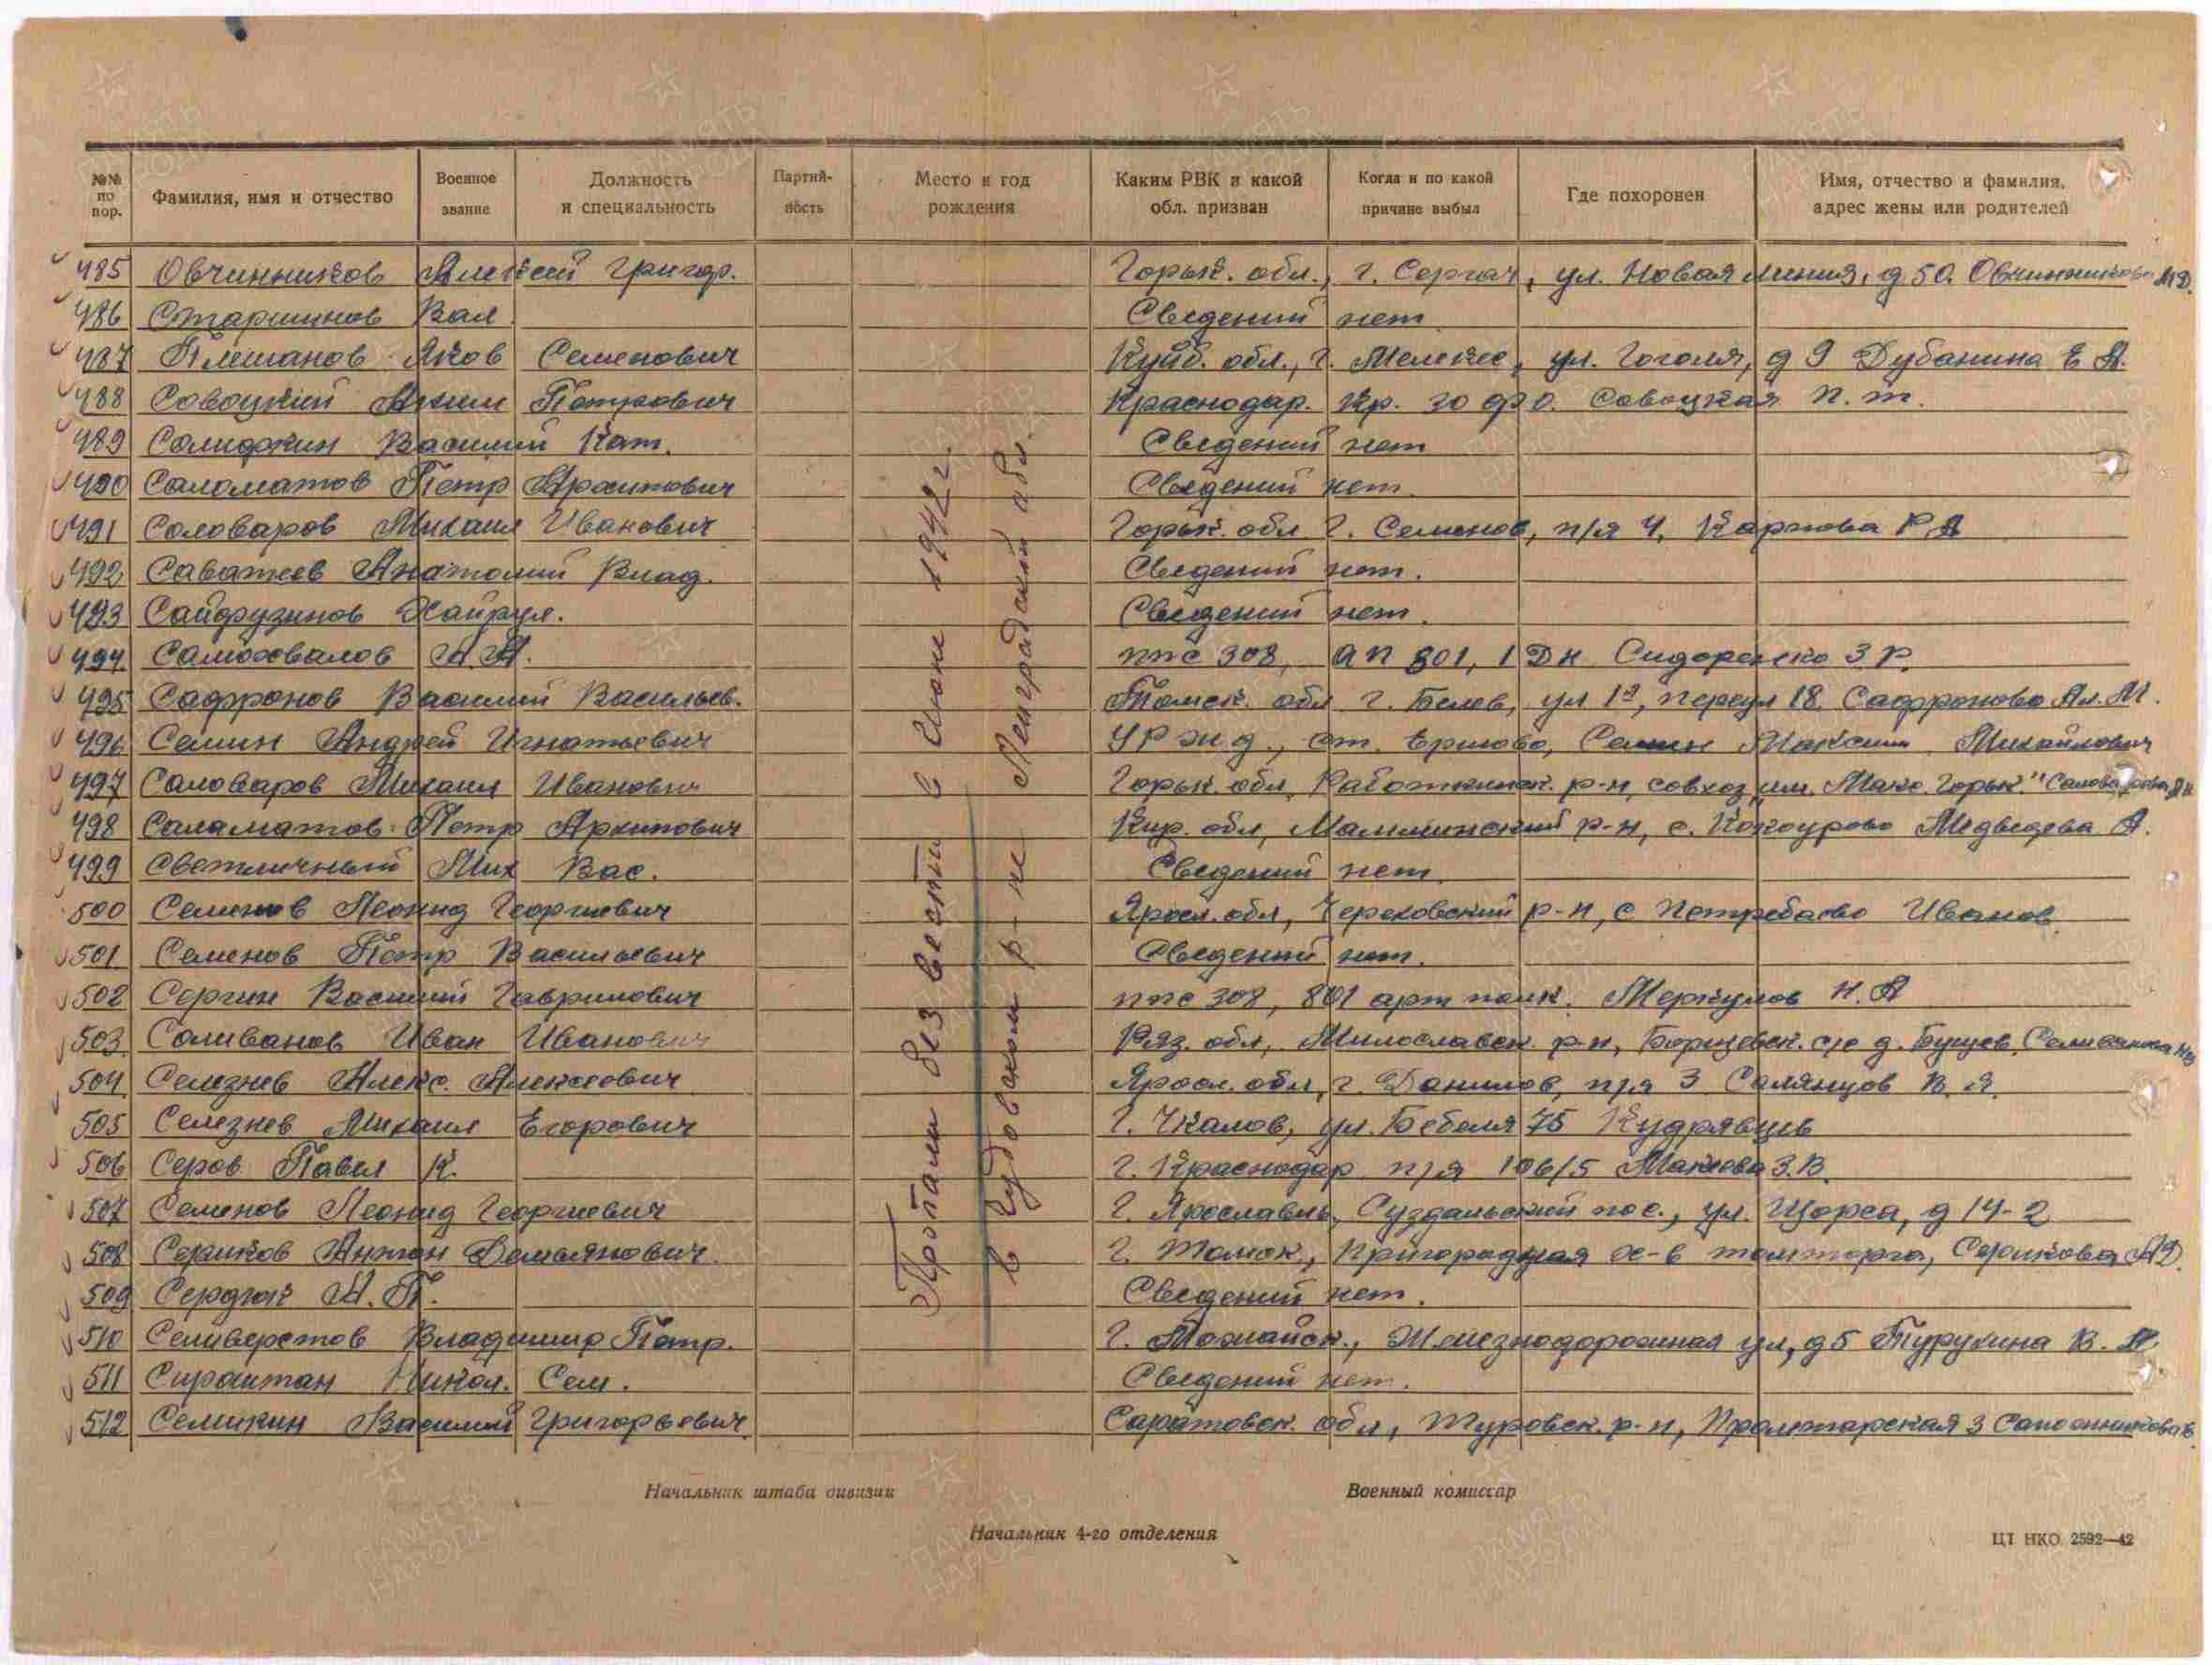 №№ по пор.
Фамилия, имя и отчество
Военное звание
Должность и специальность
Партийность
Место и год рождения
Каким РВК и какой обл. призван
Когда и по какой причине выбыл
Где похоронен
Имя, отчество и фамилия, адрес жены или родителей
485 Овчинников Алексей Григор. Горьк. обл., г. Сергач, ул. Новая линия, д 50. Овчинникова М Д.
486 Старшинов Вал Сведений нет
487 Плешанов Яков Семенович Куйб. обл., г. Мелекес, ул. Гоголя, д 9 Дубанина Е А.
488 Совоцкий Аким Петрович Краснодар. Кр. Совоцкая П. т.
489 Василий Сведений нет
490 Саломатов Петр Архипович Сведений нет.
491 Соловаров Михаил Иванович Горьк. обл г. Семенов, п/я 4, Карпова Р А
492 Саватеев Анатолий Влад. Сведений нет.
493 Сайфузинов Хайрул. Сведений нет.
494 Самохвалов А. А. ппс 308, ап 801, 1 Дн Сидоренко З Р.
495 Сафронов Василий Васильев. г. Белев, ул 1я, переул 18. Сафронова Ал. М.
496 Семин Андрей Игнатьевич ст. Ершово, Семин Максим Михайлович
497 Соловаров Михаил Иванович Горьк. обл, Работкинск. р-н, совхоз „им. Макс. Горьк."
498 Саламатов Петр Архипович Кир. обл, р-н, с. Медведева А.
499 Светличный Мих Вас. Сведений нет
500 Семенов Леонид Георгиевич Яросл. обл, р-н, с Иванов
501 Семенов Петр Васильевич Сведений нет.
502 Сергин Василий Гаврилович ппс 308, 801 арт полк. Меркулов Н. А
503 Селиванов Иван Иванович Ряз. обл, Милославск. р-н, с/с д. Селиванова
504 Селезнев Алекс. Алексеевич Яросл. обл, г. Данилов, п/я 3 Салянцов В. Я.
505 Селезнев Михаил Егорович г. Чкалов, ул. Бебеля 75 Кудрявцев
506 Серов Павел К. г. Краснодар п/я 106/5 З. В.
507 Семенов Леонид Георгиевич г. Ярославль, Суздальский пос., ул. Щорса, д 14-2
508 Сериков Антон Демьянович г. Томск, Пригородная х-в томторга, Серикова А Д.
509 Сердюк А. П. Сведений нет.
510 Селиверстов Владимир Петр. г. Можайск, Железнодорожная ул, д 5 Турухина В.
511 Никол. Сем. Сведений нет.
512 Семикин Василий Григорьевич Саратовск. обл, р-н, Пролетарская 3
Пропали без вести в Июне 1942 г.
в Чудовском р-не Ленградский обл.
Начальник штаба дивизии
Военный комиссар
Начальник 4-го отделения
ЦТ НКО 2592—42
ПАМЯТЬ НАРОДА